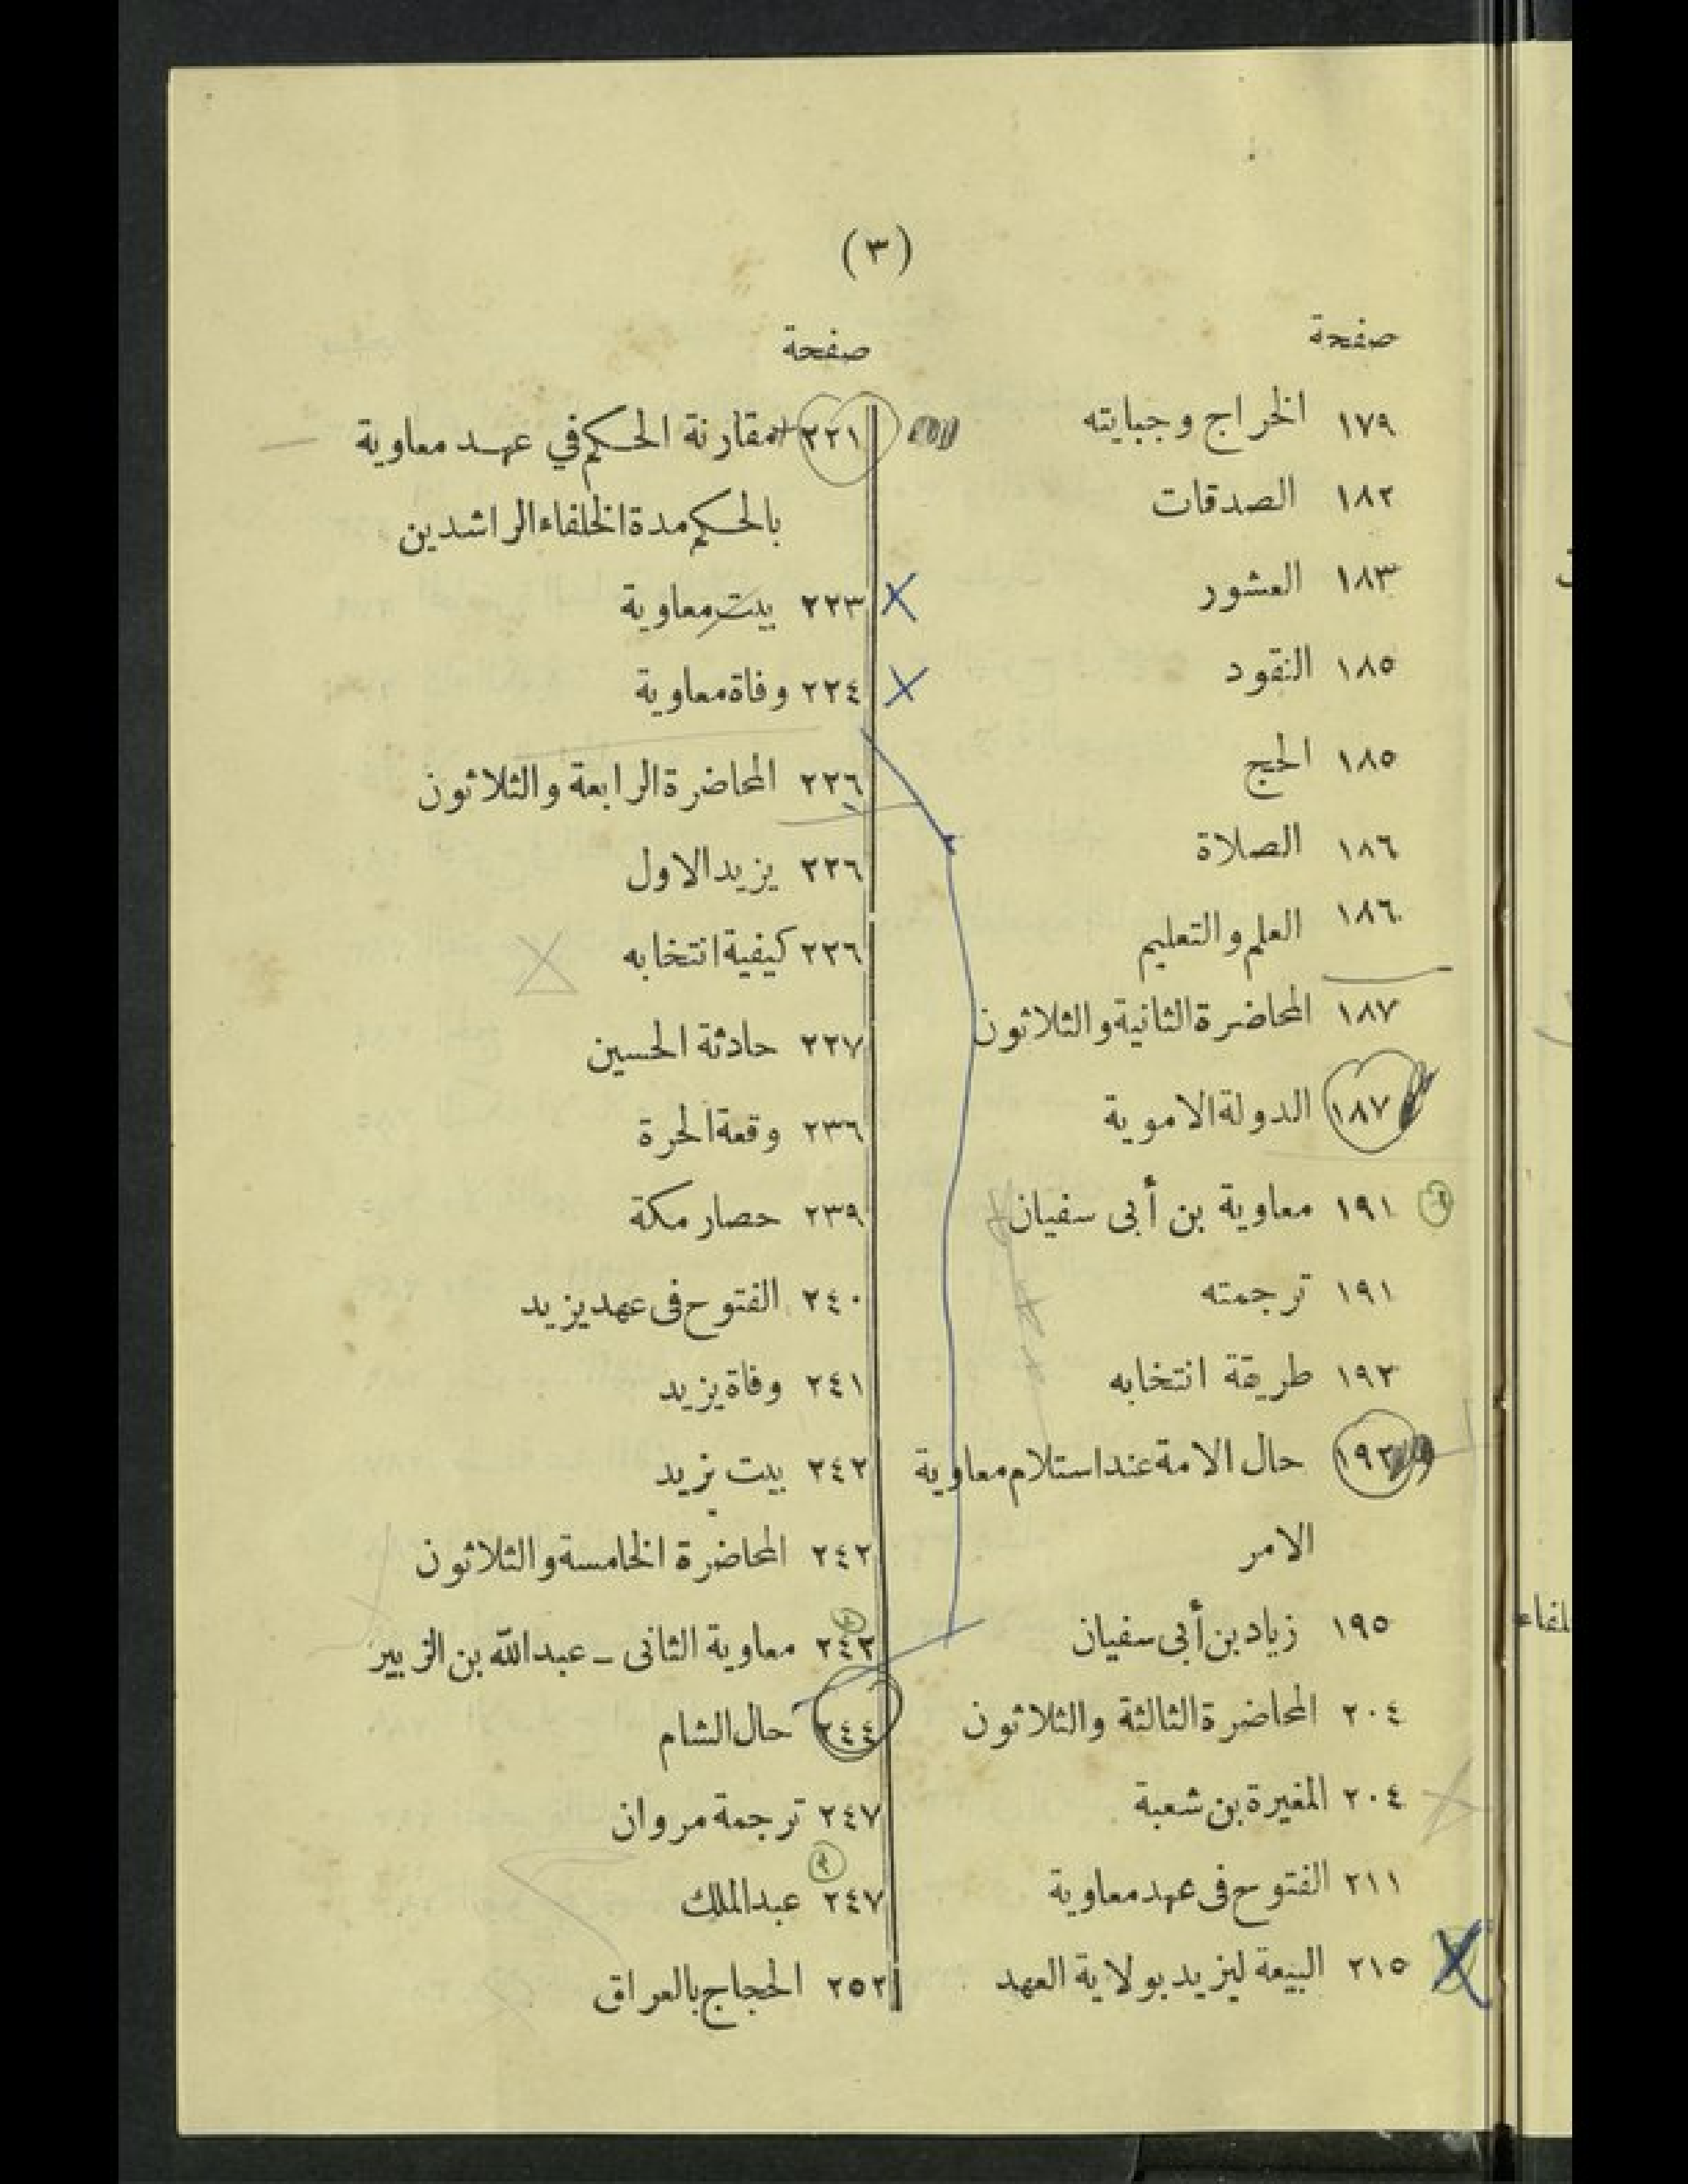 (٣)
صفحة
١٧٩ الخراج وجبايته
١٨٢ الصدقات
١٨٣ العشور
١٨٥ النقود
١٨٥ الحج
١٨٦ الصلاة
١٨٦ العلم والتعليم
١٨٧ المحاضرة الثانية والثلاثون
١٨٧ الدولة الاموية
١٩١ معاوية بن أبى سفيان
١٩١ ترجمته
١٩٢ طريقة انتخابه
١٩٢ حال الامة عند استلام معاوية
الامر
١٩٥ زياد بن أبى سفيان
٢٠٤ المحاضرة الثالثة والثلاثون
٢٠٤ المغيرة بن شعبة
٢١١ الفتوح فى عهد معاوية
٢١٥ البيعة ليزيد بولاية العهد
صفحة
٢٢١ مقارنة الحكم في عهد معاوية
بالحكم مدة الخلفاء الراشدين
٢٢٣ بيت معاوية
٢٢٤ وفاة معاوية
٢٢٦ المحاضرة الرابعة والثلاثون
٢٢٦ يزيد الاول
٢٢٦ كيفية انتخابه
٢٢٧ حادثة الحسين
٢٣٦ وقعة الحرة
٢٣٩ حصار مكة
٢٤٠ الفتوح فى عهد يزيد
٢٤١ وفاة يزيد
٢٤٢ بيت يزيد
٢٤٢ المحاضرة الخامسة والثلاثون
٢٤٢ معاوية الثانى ــ عبد الله بن الزبير
٢٤٤ حال الشام
٢٤٧ ترجمة مروان
٢٤٧ عبد الملك
٢٥٢ الحجاج بالعراق